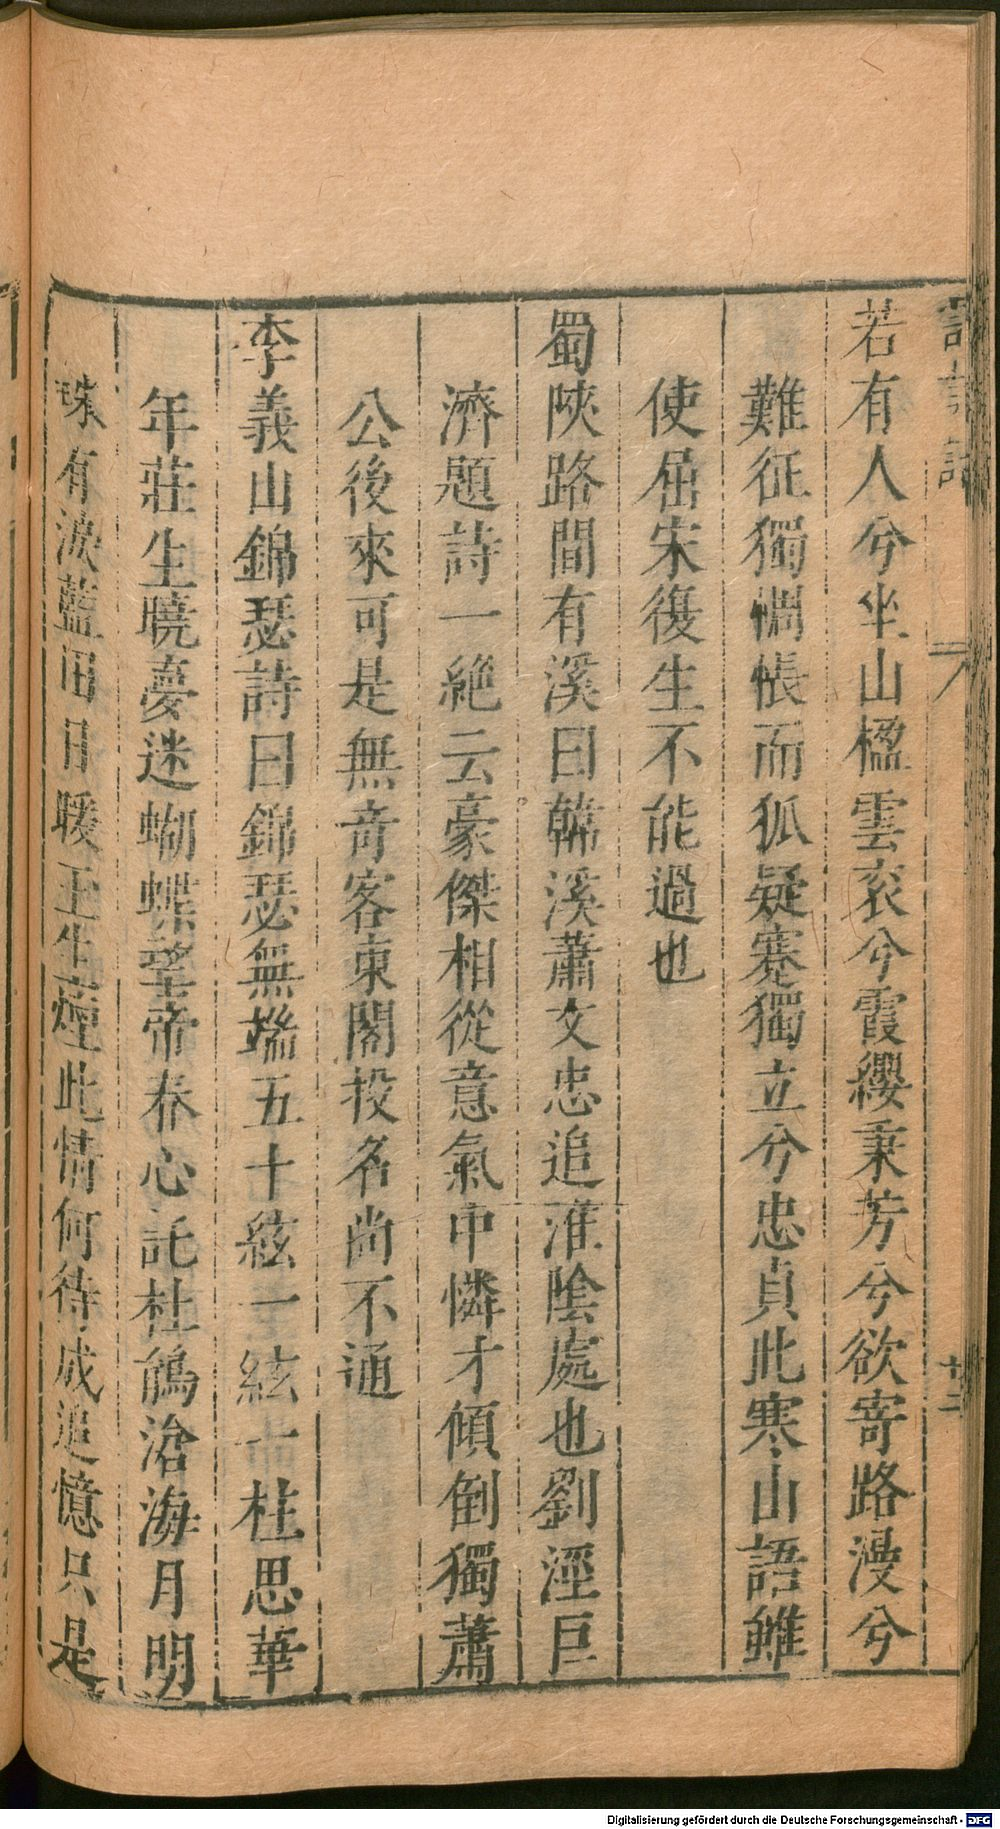 若有人兮坐山楹雲衮兮霞纓秉芳兮欲寄路漫兮
難征獨惆悵而狐疑蹇獨立兮忠貞此寒山語雖
使屈宋復生不能過也
蜀陜路間有溪曰韓溪蕭文忠追淮陰處也劉涇巨
濟題詩一絶云豪傑相從意氣中憐才傾倒獨蕭
公後來可是無竒客東閣投名尚不通
李義山錦瑟詩曰錦瑟無端五十絃一絃一柱思華
年莊生曉夢迷蝴蝶望帝春心託杜鵑滄海月明
珠有淚藍田日暖玉生煙此情何待成追憶只是
廿二
Digitalisierung gefördert durch die Deutsche Forschungsgemeinschaft - DFG